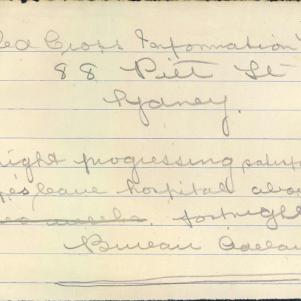 ed Cross Information
88 Pitt St
Sydney.
ight progressing satisfa
leave hospital abo
weeks. fortnight
Bureau Adelai